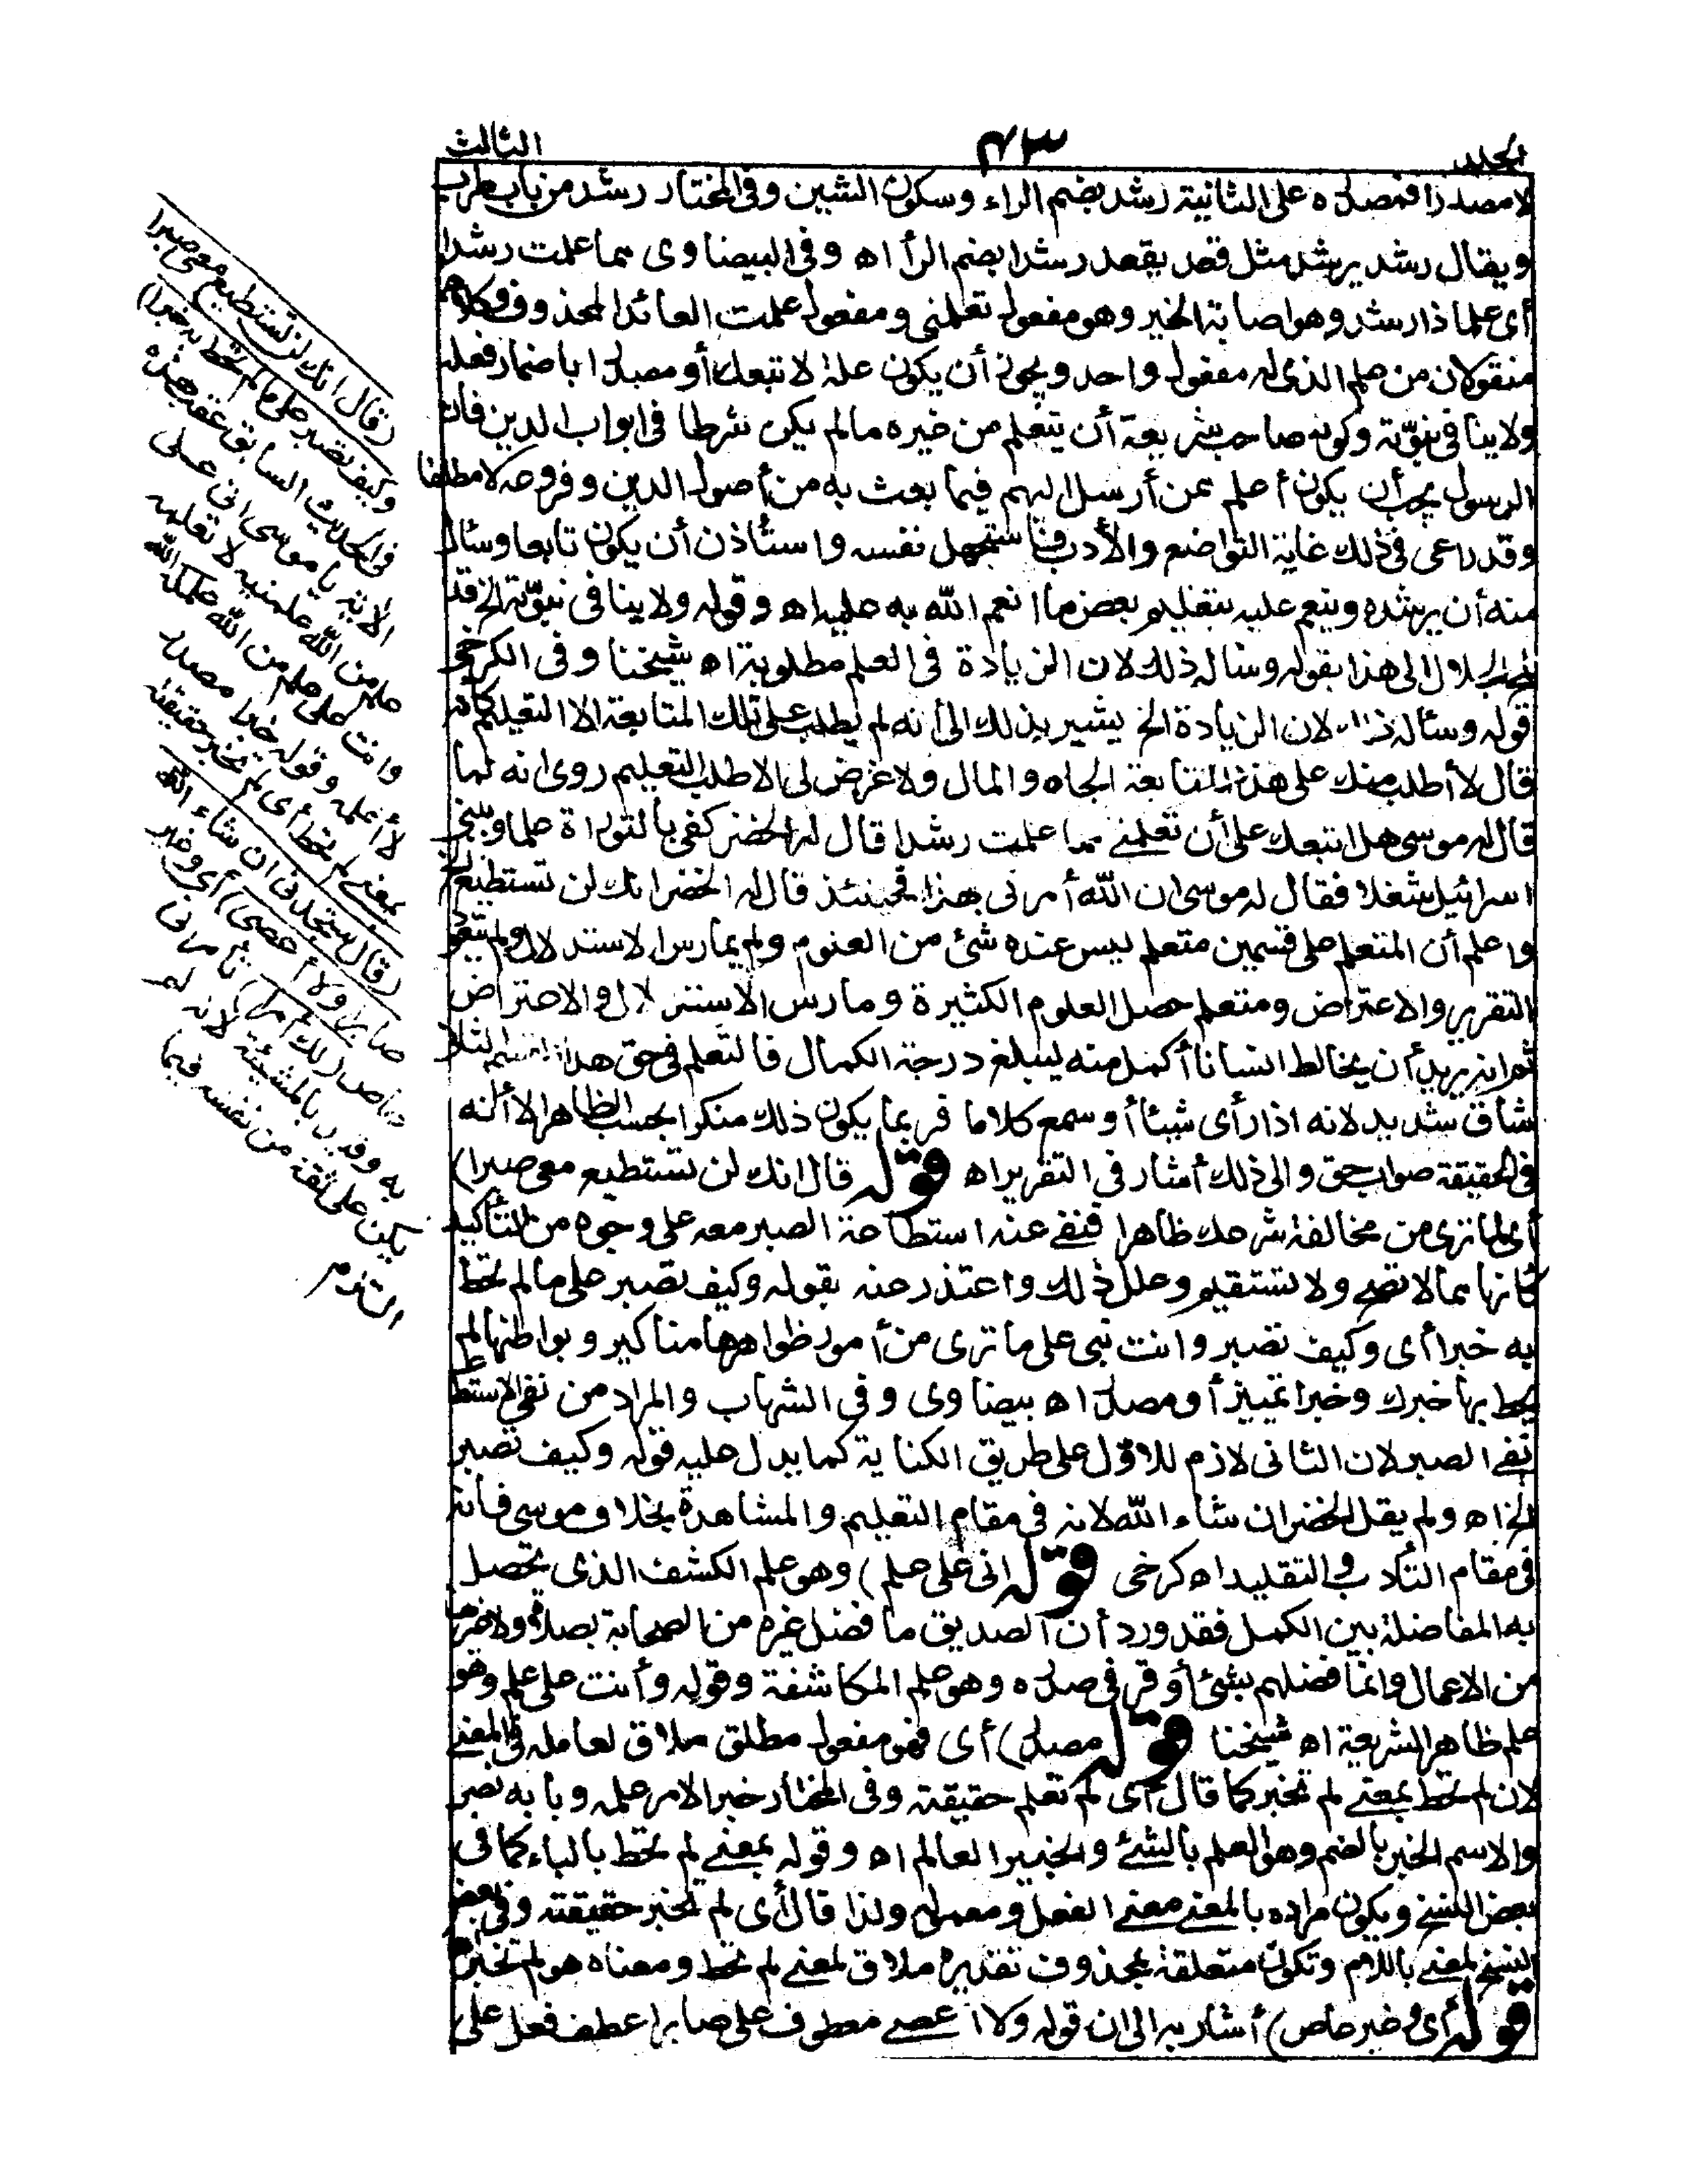 الجلد ٤٣ الثالث
لا مصدرا فمصدره على الثانية رشد بضم الراء وسكون الشين وفى المختار رشد من باب طرب
ويقال رشد يرشد مثل قعد يقعد رشدا بضم الراء اه وفى البيضاوى مما علمت رشدا
أى علما ذا رشد وهو اصابة الخير وهو مفعول تعلمنى ومفعول علمت العائد المحذوف وكلاهما
منقولان من علم الذى له مفعول واحد ويجوز أن يكون علة لا تبعك أو مصدرا باضمار فعله
ولا ينافى نبوّته وكونه صاحب شريعة أن يتعلم من غيره مالم يكن شرطا فى ابواب الدين فان
الرسول يجب أن يكون أعلم ممن أرسل اليهم فيما بعث به من أصول الدين وفروعه لا مطلقا
وقد راعى فى ذلك غاية التواضع والأدب فاستجهل نفسه واستأذن أن يكون تابعا وسأل
منه أن يرشده وينعم عليه بتعليم بعض ما انعم الله به عليه اه وقوله ولا ينافى نبوّته الخ قد
الجلال الى هذا بقوله وسأله ذلك لان الزيادة فى العلم مطلوبة اه شيخنا وفى الكرخى
قوله وسأله ذلك لان الزيادة الخ يشير بذلك الى أنه لم يطلب على تلك المتابعة الا التعليم كأنه
قال لا أطلب منك على هذه المتابعة الجاه والمال ولا غرض لى الا طلب التعليم روى انه لما
قال له موسى هل اتبعك على أن تعلمنى مما علمت رشدا قال له الخضر كفى بالتوراة علما وببنى
اسرائيل شغلا فقال له موسى ان الله أمرنى بهذا فحينئذ قال له الخضر انك لن تستطيع الخ
واعلم أن المتعلم على قسمين متعلم ليس عنده شئ من العلوم ولم يمارس الاستدلال ولم يتعوّد
التقرير والاعتراض ومتعلم حصل العلوم الكثيرة ومارس الاستدلال والاعتراض
ثم انه يريد أن يخالط انسانا أكمل منه ليبلغ درجة الكمال فالتعلم فى حق هذا
شاق شديد لانه اذا رأى شيئا أو سمع كلاما فربما يكون ذلك منكرا بحسب الظاهر الا أنه
فى الحقيقة صواب حق والى ذلك أشار فى التقرير اه قوله قال انك لن تستطيع معى صبرا)
أى لما ترى من مخالفة شرعك ظاهرا فنفى عنه استطاعة الصبر معه على وجوه من التأكيد
كأنها مما لا تصح ولا تستقيم وعلل ذلك واعتذر عنه بقوله وكيف تصبر على مالم تحط
به خبرا أى وكيف تصبر وانت نبى على ما ترى من أمور ظواهرها مناكير وبواطنها لم
يحط بها خبرك وخبرا تمييز أو مصدر اه بيضاوى وفى الشهاب والمراد من نفى الاستطاعة
نفى الصبر لان الثانى لازم للاوّل على طريق الكناية كما يدل عليه قوله وكيف تصبر
الخ اه ولم يقل الخضر ان شاء الله لانه فى مقام التعليم والمشاهدة بخلاف موسى فانه
فى مقام التأدب والتقليد اه كرخى قوله انى على علم) وهو علم الكشف الذى تحصل
به المفاضلة بين الكمل فقد ورد أن الصديق ما فضل غيره من الصحابة بصلاة ولا غيرها
من الاعمال وانما فضلهم بشئ وقر فى صدره وهو علم المكاشفة وقوله وأنت على علم وهو
علم ظاهر الشريعة اه شيخنا قوله مصدر) أى فهو مفعول مطلق ملاق لعامله فى المعنى
لان لم تحط بمعنى لم تخبر كما قال أى لم تعلم حقيقته وفى المختار خبر الامر علمه وبابه نصر
والاسم الخبر بالضم وهو العلم بالشئ والخبير العالم اه وقوله بمعنى لم تحط بالباء كما فى
بعض النسخ ويكون مراده بالمعنى معنى الفعل ومعموله ولذا قال أى لم تخبر حقيقته وفى بعض
النسخ لمعنى باللام وتكون متعلقة بمحذوف تقديره ملاق لمعنى لم تحط ومعناه هو لم تخبر اه
قوله أى وغير عاص) أشار به الى ان قوله ولا اعصى معطوف على صابرا عطف فعل على
(قال انك لن تستطيع معى صبرا
وكيف تصبر على مالم تحط به خبرا)
فى الحديث السابق عقب هذه
الاية يا موسى انى على
علم من الله علمنيه لا تعلمه
وانت على علم من الله علمكه الله
لا أعلمه وقوله خبرا مصدر
بمعنى لم تحط أى لم تخبر حقيقته
(قال ستجدنى ان شاء الله
صابرا ولا أعصى) أى وغير
عاص (لك أمرا) تأمرنى
به وقيد بالمشيئة لانه لم
يكن على ثقة من نفسه فيما
التزم